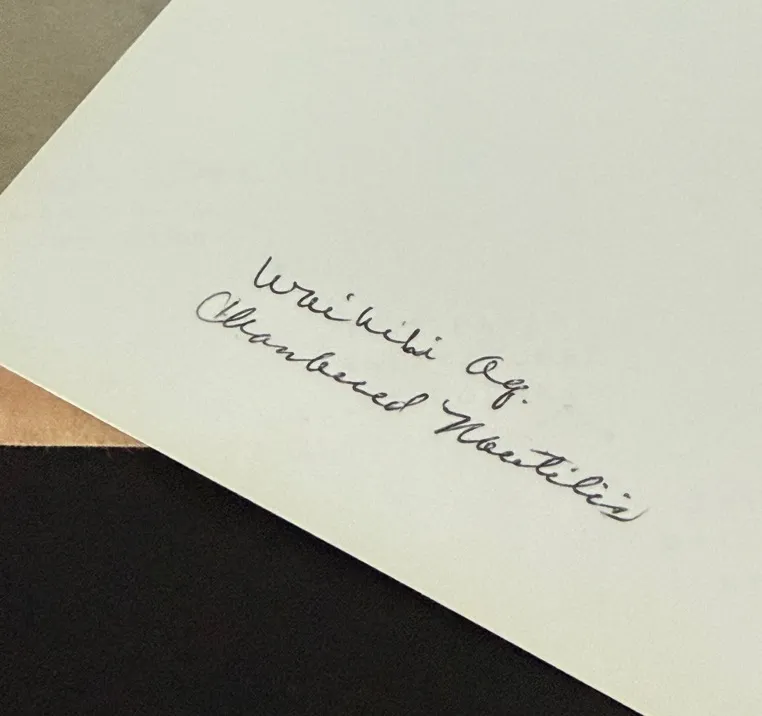 Waikiki Aq.
Chambered Nautilis